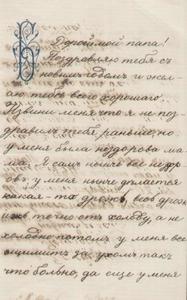 Дорогой мой папа!
Поздравляю тебя съ
новымъ годомъ и жел-
аю тебѣ всего хорошаго.
Извини меня что я не поз-
дравилъ тебя раньше, но
у меня была нездорова ма-
ма. Я самъ нынче не здо-
ровъ, у меня нынче дѣлается
какая-то дрожь, весь дрожу
точно отъ холоду, а не
холодно потомъ у меня все
за ухомъ такъ
что больно, да еще у меня